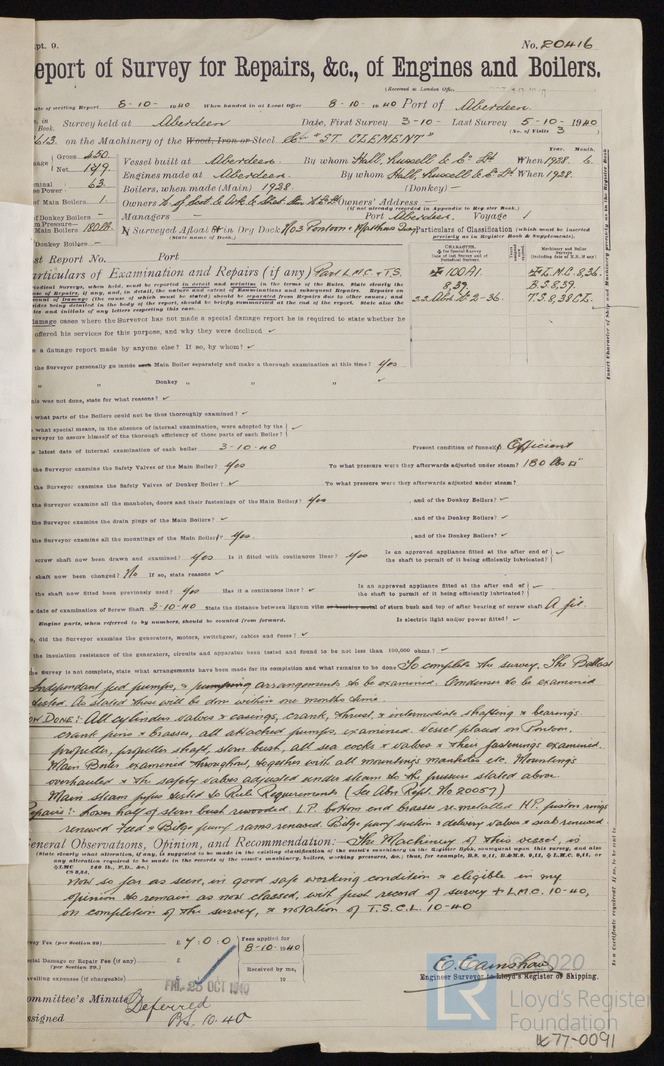 pt. 9. No. 20416
eport of Survey for Repairs, &c., of Engines and Boilers.
(Received at London Office
ate of writing Report 8-10- 1940 When handed in at Local Office 8-10- 1940 Port of Aberdeen
in Book. Survey held at Aberdeen Date, First Survey 3-10- Last Survey 5-10- 1940
(No. of Visits 3
613. on the Machinery of the Wood, Iron or Steel "ST. CLEMENT"
Gross 450 Vessel built at Aberdeen. By whom Hall, Russell & Co Ld When 1928. 6.
Year. Month.
Net 179. Engines made at Aberdeen. By whom Hall, Russell & Co Ld When 1928.
63. Boilers, when made (Main) 1928 (Donkey) –
of Main Boilers 1 Owners N. of Scot. & Ork. & Shet. Owners' Address –
(if not already recorded in Appendix to Register Book.)
of Donkey Boilers – Managers – Port Aberdeen. Voyage 1
Main Boilers 180 lb. Surveyed Afloat or in Dry Dock No 3 Pontoon & Matthews Quay
(State name of Dock.)
Particulars of Classification (which must be inserted
precisely as in Register Book & Supplements).
Donkey Boilers –
st Report No. Port
articulars of Examination and Repairs (if any) Part L.M.C. & T.S.
100A1. L.M.C. 8,36.
8,39. B.S. 8,39.
T.S. 8,38 C.L.
damage cases where the Surveyor has not made a special damage report he is required to state whether he
offered his services for this purpose, and why they were declined ✓
e a damage report made by anyone else? If so, by whom? ✓
the Surveyor personally go inside each Main Boiler separately and make a thorough examination at this time? Yes
" " Donkey " " " " ✓
his was not done, state for what reasons? ✓
what parts of the Boilers could not be thoroughly examined? ✓
what special means, in the absence of internal examination, were adopted by the
urveyor to assure himself of the thorough efficiency of those parts of each Boiler? ✓
e latest date of internal examination of each boiler 3-10-40 Present condition of funnel(s) Efficient
the Surveyor examine the Safety Valves of the Main Boiler? Yes To what pressure were they afterwards adjusted under steam? 180 lbs □"
the Surveyor examine the Safety Valves of Donkey Boiler? ✓ To what pressure were they afterwards adjusted under steam? ✓
the Surveyor examine all the manholes, doors and their fastenings of the Main Boilers? Yes , and of the Donkey Boilers? ✓
the Surveyor examine the drain plugs of the Main Boilers? ✓ , and of the Donkey Boilers? ✓
the Surveyor examine all the mountings of the Main Boilers? Yes. , and of the Donkey Boilers? ✓
screw shaft now been drawn and examined? Yes Is it fitted with continuous liner? Yes Is an approved appliance fitted at the after end of
the shaft to permit of it being efficiently lubricated? ✓
shaft now been changed? No If so, state reasons ✓
the shaft now fitted been previously used? Yes Has it a continuous liner? ✓ Is an approved appliance fitted at the after end of
the shaft to permit of it being efficiently lubricated? ✓
e date of examination of Screw Shaft 3-10-40 State the distance between lignum vitæ or bearing metal of stern bush and top of after bearing of screw shaft A fit.
Engine parts, when referred to by numbers, should be counted from forward. Is electric light and/or power fitted? ✓
, did the Surveyor examine the generators, motors, switchgear, cables and fuses? ✓
the insulation resistance of the generators, circuits and apparatus been tested and found to be not less than 100,000 ohms? ✓
he Survey is not complete, state what arrangements have been made for its completion and what remains to be done To complete the survey. The Ballast
Independant feed pumps, & pumping arrangements to be examined. Condenser to be examined
tested. As stated these will be done within one months time.
ow Done: All cylinders valves & casings, crank, thrust, & intermediate shafting & bearings
crank pins & brasses, all attached pumps, examined. Vessel placed on Pontoon,
propeller, propeller shaft, stern bush, all sea cocks & valves & their fastenings examined.
Main Boiler examined throughout, together with all mountings manholes etc. Mountings
overhauled & the safety valves adjusted under steam to the pressure stated above.
Main steam pipes tested to Rule Requirements (See Abn Rept. No 20057)
Repairs: Lower half of stern bush rewooded. L.P. bottom end brasses remetalled H.P. piston rings
renewed Feed & Bilge pump rams renewed. Bilge pump suction & delivery valves & seats renewed
eneral Observations, Opinion, and Recommendation: The Machinery of this vessel, is
now so far as seen, in good safe working condition & eligible in my
opinion to remain as now classed, with fresh record of survey + L.M.C. 10-40,
on completion of the survey, & notation of T.S.C.L. 10-40
vey Fee (per Section 29) £ 7:0:0 Fees applied for
8-10-1940
ecial Damage or Repair Fee (if any) £
(per Section 29.) Received by me,
avelling expenses (if chargeable) £ 19
FRI. 25 OCT 1940
Engineer Surveyor to Lloyd's Register of Shipping.
ommittee's Minute Deferred
ssigned BS. 10.40
©2020
LR
Lloyd's Register
Foundation
77-0091